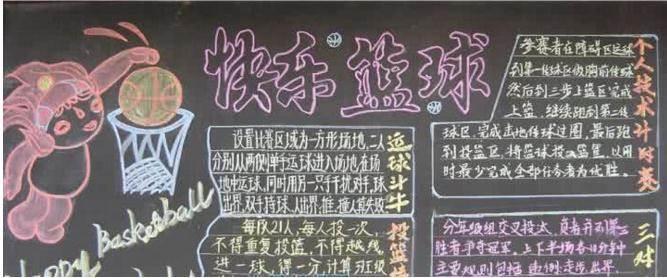 快乐篮球
Happy Basketball
运球斗牛
设置比赛区域为一方形场地,二人
分别从两侧单手运球进入场地,在场
地中运球,同时用另一只手干扰对手,球
出界,双手持球,人出界,推,撞人算失败
投篮
每队21人,每人投一次,
不得重复投篮,不得越线,
进一球,得一分计算班级
个人技术计时赛
参赛者在障碍区运球
到第一传球区做胸前传球
然后到三步上篮区完成
上篮,继续跑到第二传
球区,完成击地传球过圈,最后跑
到投篮区,将篮球投入篮筐,以用
时最少完成全部任务者为优胜。
三对
分年级组交叉投太,
胜者争夺冠军,上下半场各10分钟
主要规则包括